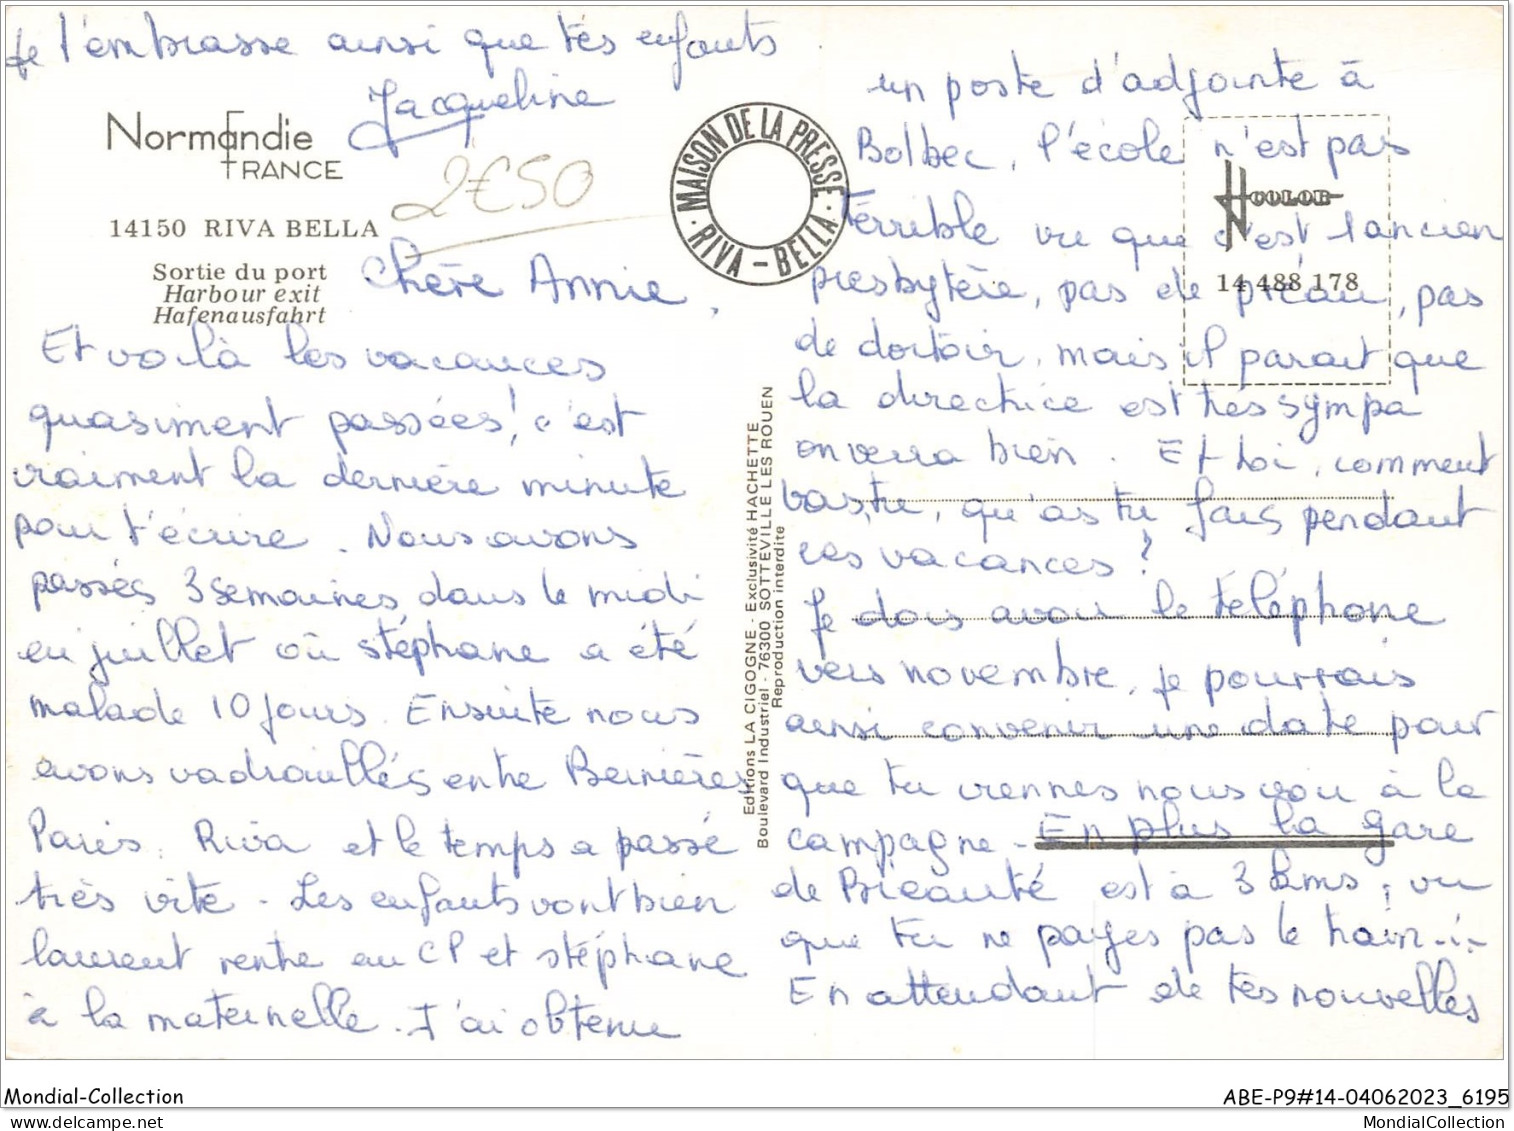 Je t'embrasse ainsi que tes enfants
Jacqueline
Normandie
FRANCE
2€50
14150 RIVA BELLA
Sortie du port
Harbour exit
Hafenausfahrt
MAISON DE LA PRESSE
RIVA-BELLA
Chère Annie,
Et voilà les vacances
quasiment passées! c'est
vraiment la dernière minute
pour t'écrire. Nous avons
passés 3 semaines dans le midi
en juillet où stéphane a été
malade 10 jours. Ensuite nous
avons vadrouillés entre Bernières
Paris, Riva et le temps a passé
très vite - Les enfants vont bien
laurent rentre au CP et stéphane
à la maternelle. J'ai obtenu
Editions LA CIGOGNE - Exclusivité HACHETTE
Boulevard Industriel - 76300 SOTTEVILLE LES ROUEN
Reproduction interdite
COLOR
14 488 178
un poste d'adjointe à
Bolbec, l'école n'est pas
Terrible vu que c'est l'ancien
presbytère, pas de préau, pas
de dortoir, mais il parait que
la directrice est très sympa
on verra bien. Et toi, comment
vas tu, qu'as tu fais pendant
ces vacances?
Je dois avoir le téléphone
vers novembre, je pourrais
ainsi convenir une date pour
que tu viennes nous voir à la
campagne - En plus la gare
de Bréauté est à 3 kms, vu
que tu ne payes pas le train...
En attendant de tes nouvelles
Mondial-Collection
ABE-P9#14-04062023_6195
MondialCollection